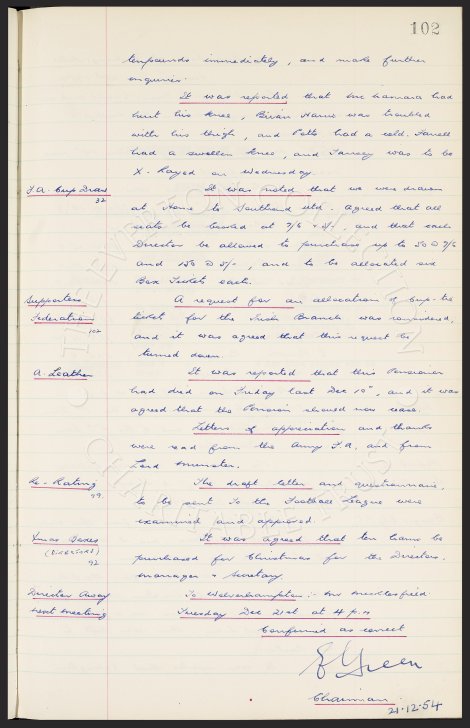 102
tenpounds immediately, and make further
enquiries.
It was reported that McNamara had
hurt his knee, Brian Harris was troubled
with his thigh, and Potts had a cold. Farrell
had a swollen knee, and Tansey was to be
X-Rayed on Wednesday.
F.A. Cup Draw
32
It was noted that we were drawn
at Home to Southend Utd. Agreed that all
seats be booked at 7/6 & 5/-, and that each
Director be allowed to purchase up to 50 @ 7/6
and 150 @ 5/-, and to be allocated six
Box Tickets each.
Supporters
Federation
102
A request for an allocation of Cup-tie
ticket for the Irish Branch was considered,
and it was agreed that this request be
turned down.
A. Leather
It was reported that this Pensioner
had died on Friday last Dec 10th, and it was
agreed that the Pension should now cease.
Letters of appreciation and thanks
were read from the Army F.A. and from
Lord
Re-Rating
99
The draft letter and questionnaire,
to be sent to the Football League were
examined and approved.
Xmas Boxes
(Directors)
92
It was agreed that ten hams be
purchased for Christmas for the Directors,
Manager & Secretary.
Director Away
To Wolverhampton :- Mr Micklesfield
Next Meeting
Tuesday Dec 21st at 4 p.m
Confirmed as correct
E Green
Chairman
21.12.54
THE EVERTON COLLECTION
CHARITABLE TRUST